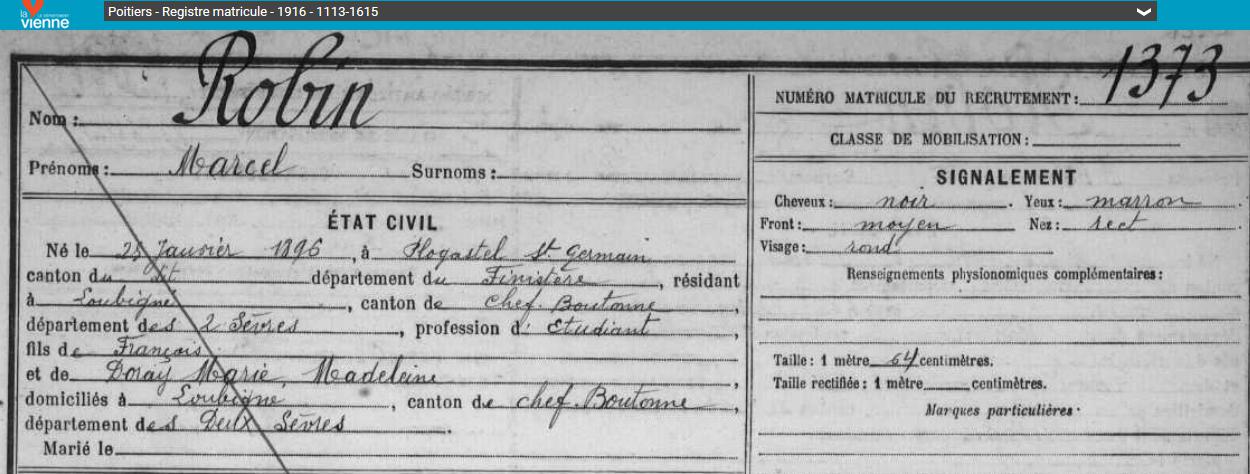 la vienne
Poitiers - Registre matricule - 1916 - 1113-1615
Nom : Robin
Prénoms : Marcel Surnoms :
ÉTAT CIVIL
Né le 25 Janvier 1896, à Plogastel St Germain
canton du dt département du Finistère, résidant
à Loubigné, canton de Chef. Boutonne,
département des 2 Sèvres, profession d' Etudiant,
fils de François
et de Doray Marie, Madeleine,
domiciliés à Loubigné, canton de chef. Boutonne,
département des Deux Sèvres
Marié le
1373
NUMÉRO MATRICULE DU RECRUTEMENT :
CLASSE DE MOBILISATION :
SIGNALEMENT
Cheveux : noir. Yeux : marron.
Front : moyen Nez : rect
Visage : rond
Renseignements physionomiques complémentaires :
Taille : 1 mètre 64 centimètres.
Taille rectifiée : 1 mètre centimètres.
Marques particulières :